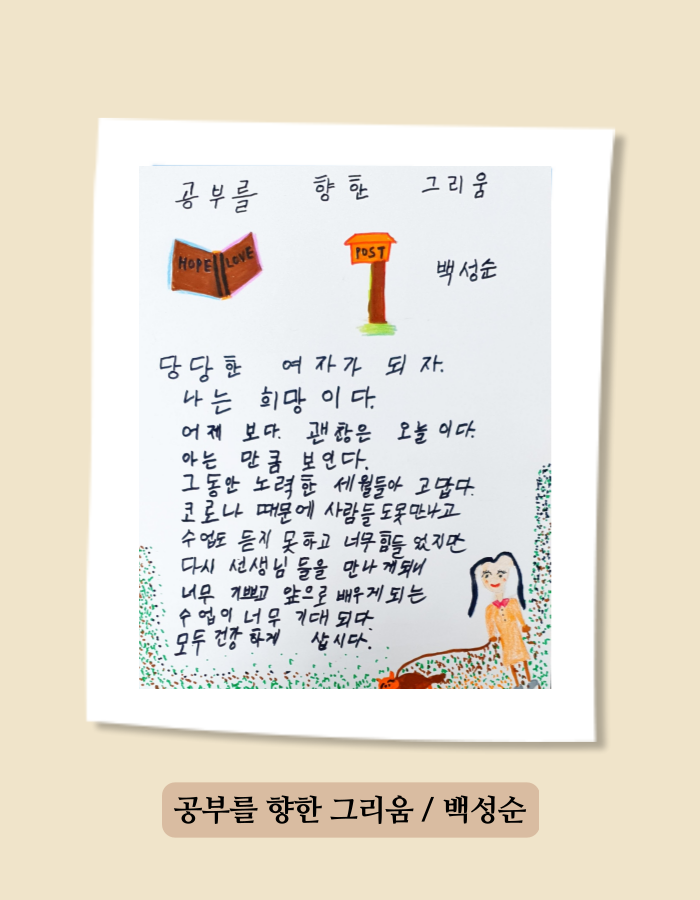 공부를 향한 그리움
HOPE LOVE
POST
백성순
당당한 여자가 되자.
나는 희망이다.
어제 보다. 괜찮은 오늘이다.
아는 만큼 보인다.
그동안 노력한 세월들아 고맙다.
코로나 때문에 사람들도못만나고
수업도 듣지 못하고 너무힘들었지만
다시 선생님들을 만나게되니
너무 기쁘고 앞으로 배우게되는
수업이 너무 기대된다.
모두 건강하게 삽시다.
공부를 향한 그리움 / 백성순